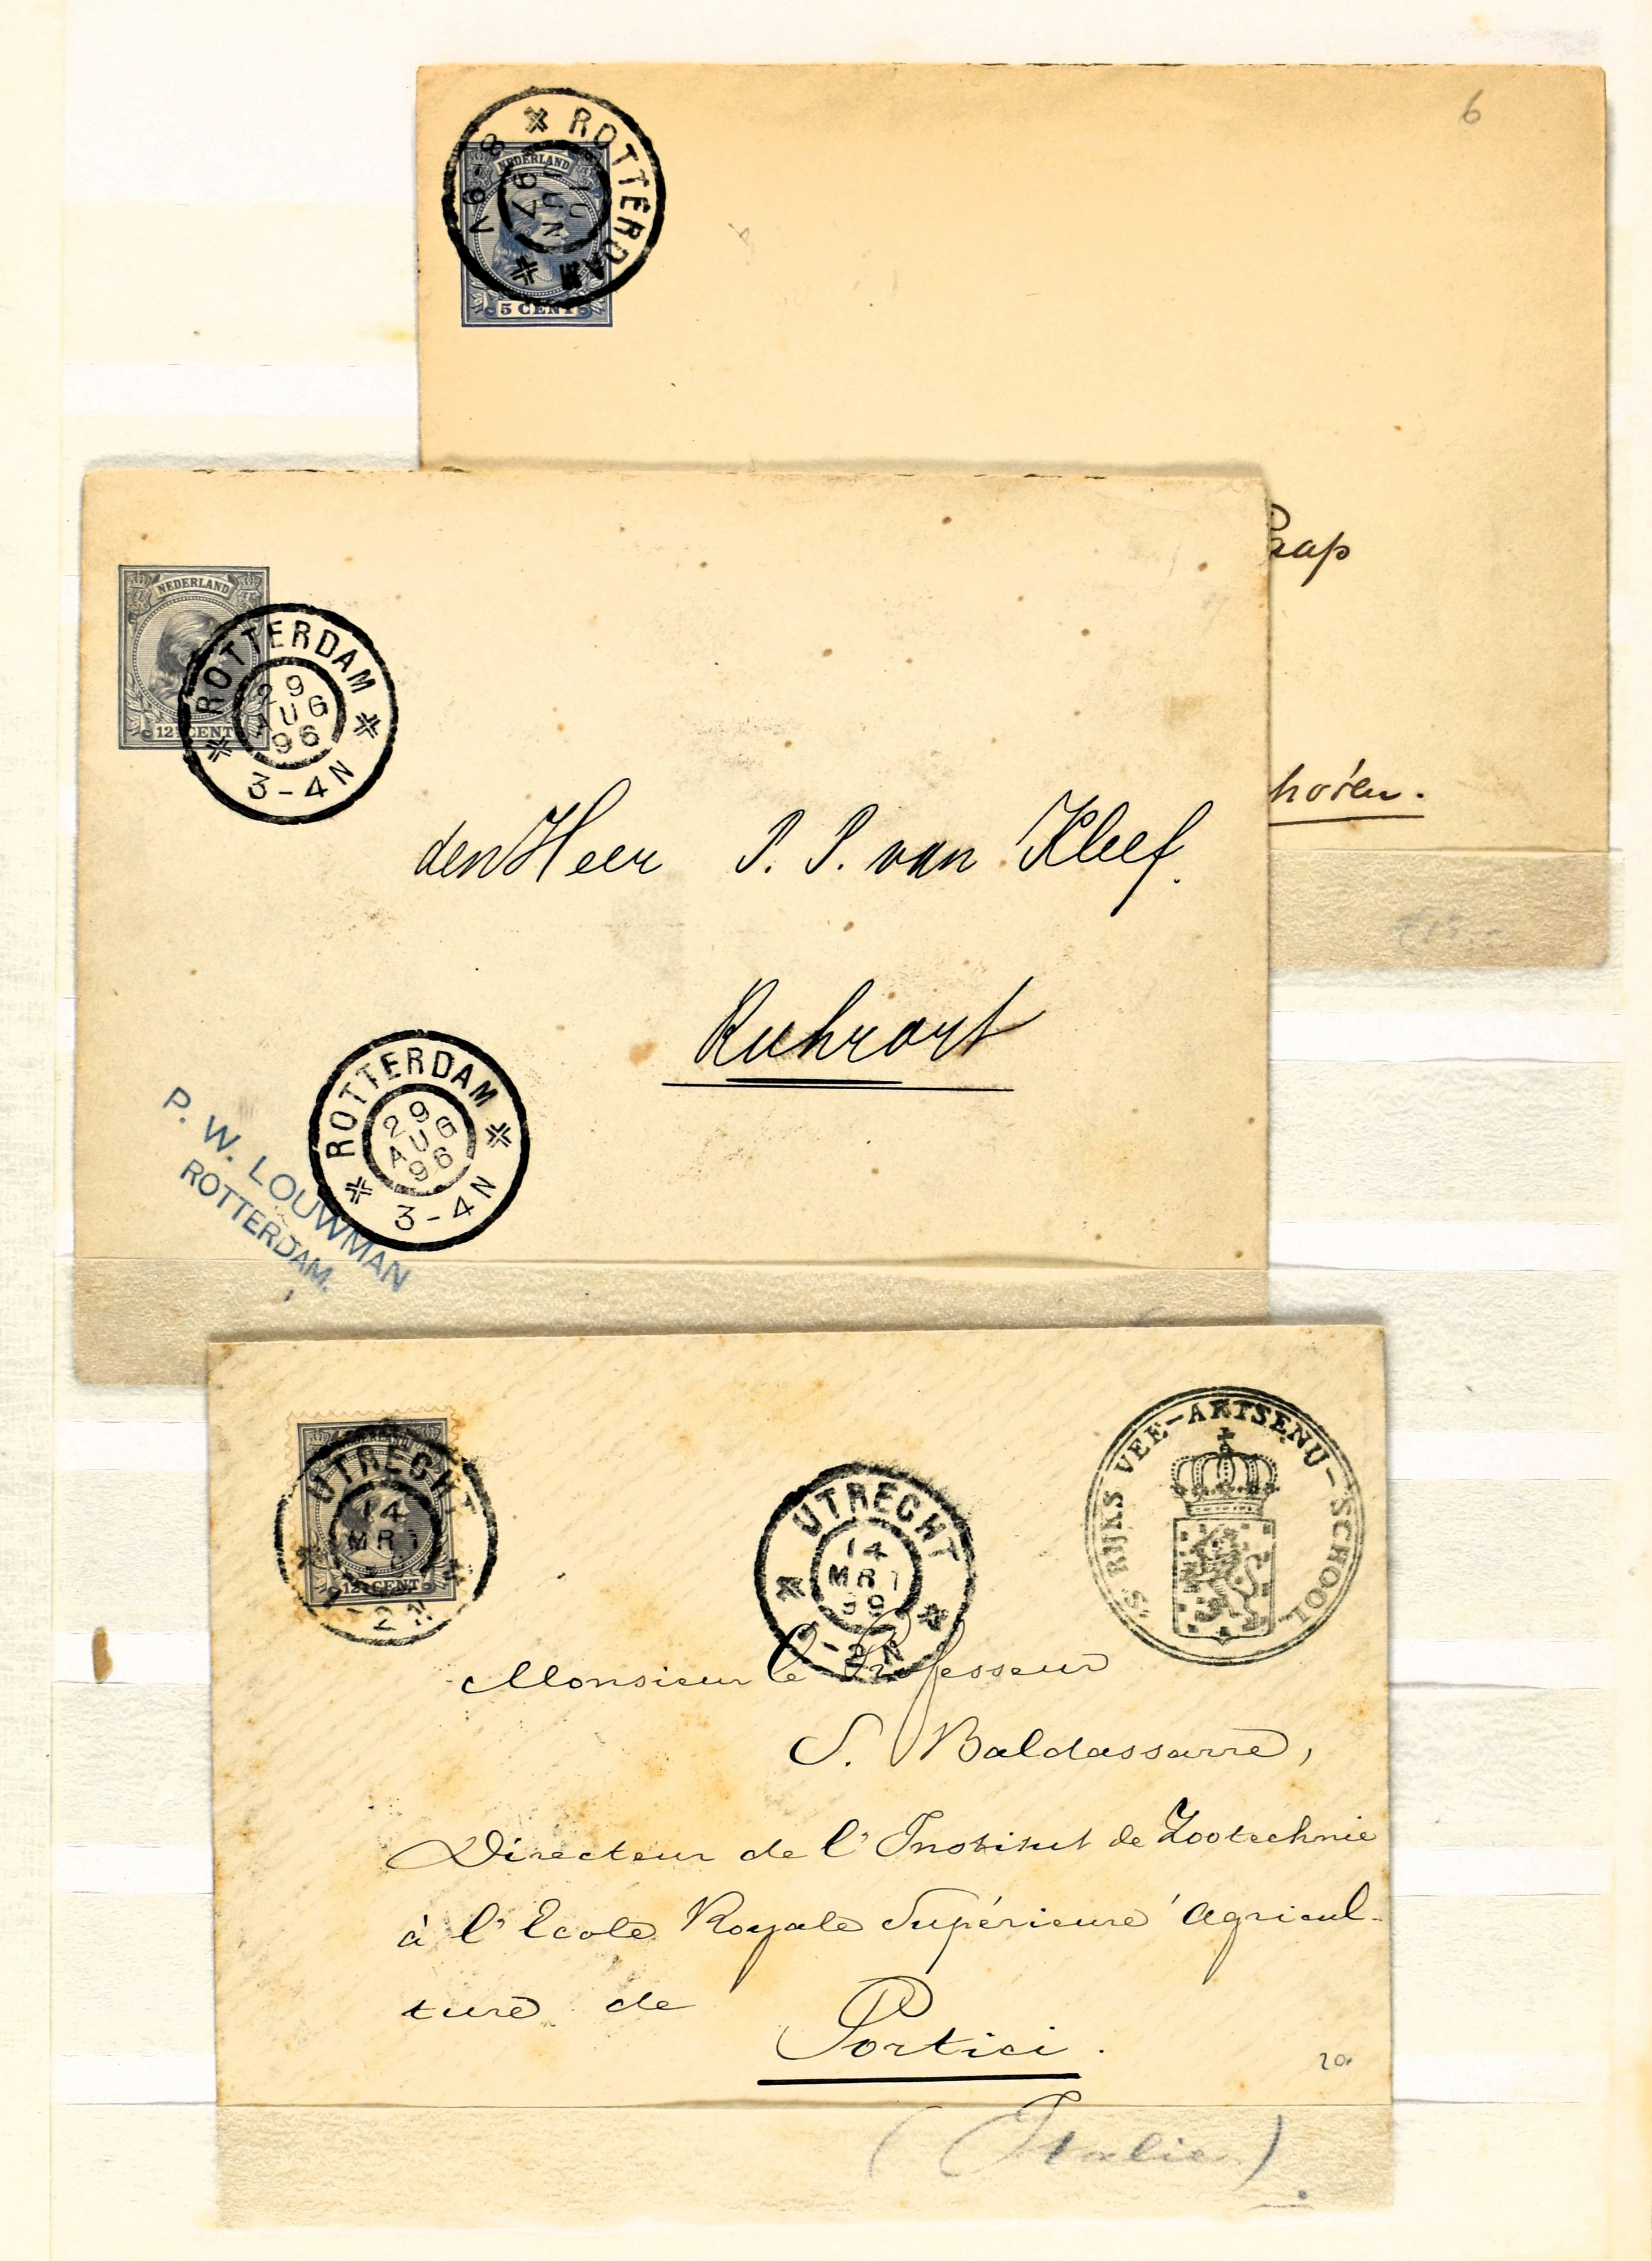 6
NEDERLAND
5 CENT
ROTTERDAM
JUN
97
8-9V
aap
horen.
NEDERLAND
12½ CENT
ROTTERDAM
29 AUG
96
3-4N
den Heer P. P. van Kleef.
Ruhrort
ROTTERDAM
29 AUG
96
3-4N
P. W. LOUWMAN
ROTTERDAM.
NEDERLAND
12½ CENT
UTRECHT
14
MRT
-2N
UTRECHT
14
MRT
99
-2N
'S RIJKS VEE-ARTSENIJ-SCHOOL
Monsieur le Professeur
S. Baldassarre,
Directeur de l'Institut de Zootechnie
à l'Ecole Royale Supérieure Agricul-
ture de
Portici.
20
(Italie)